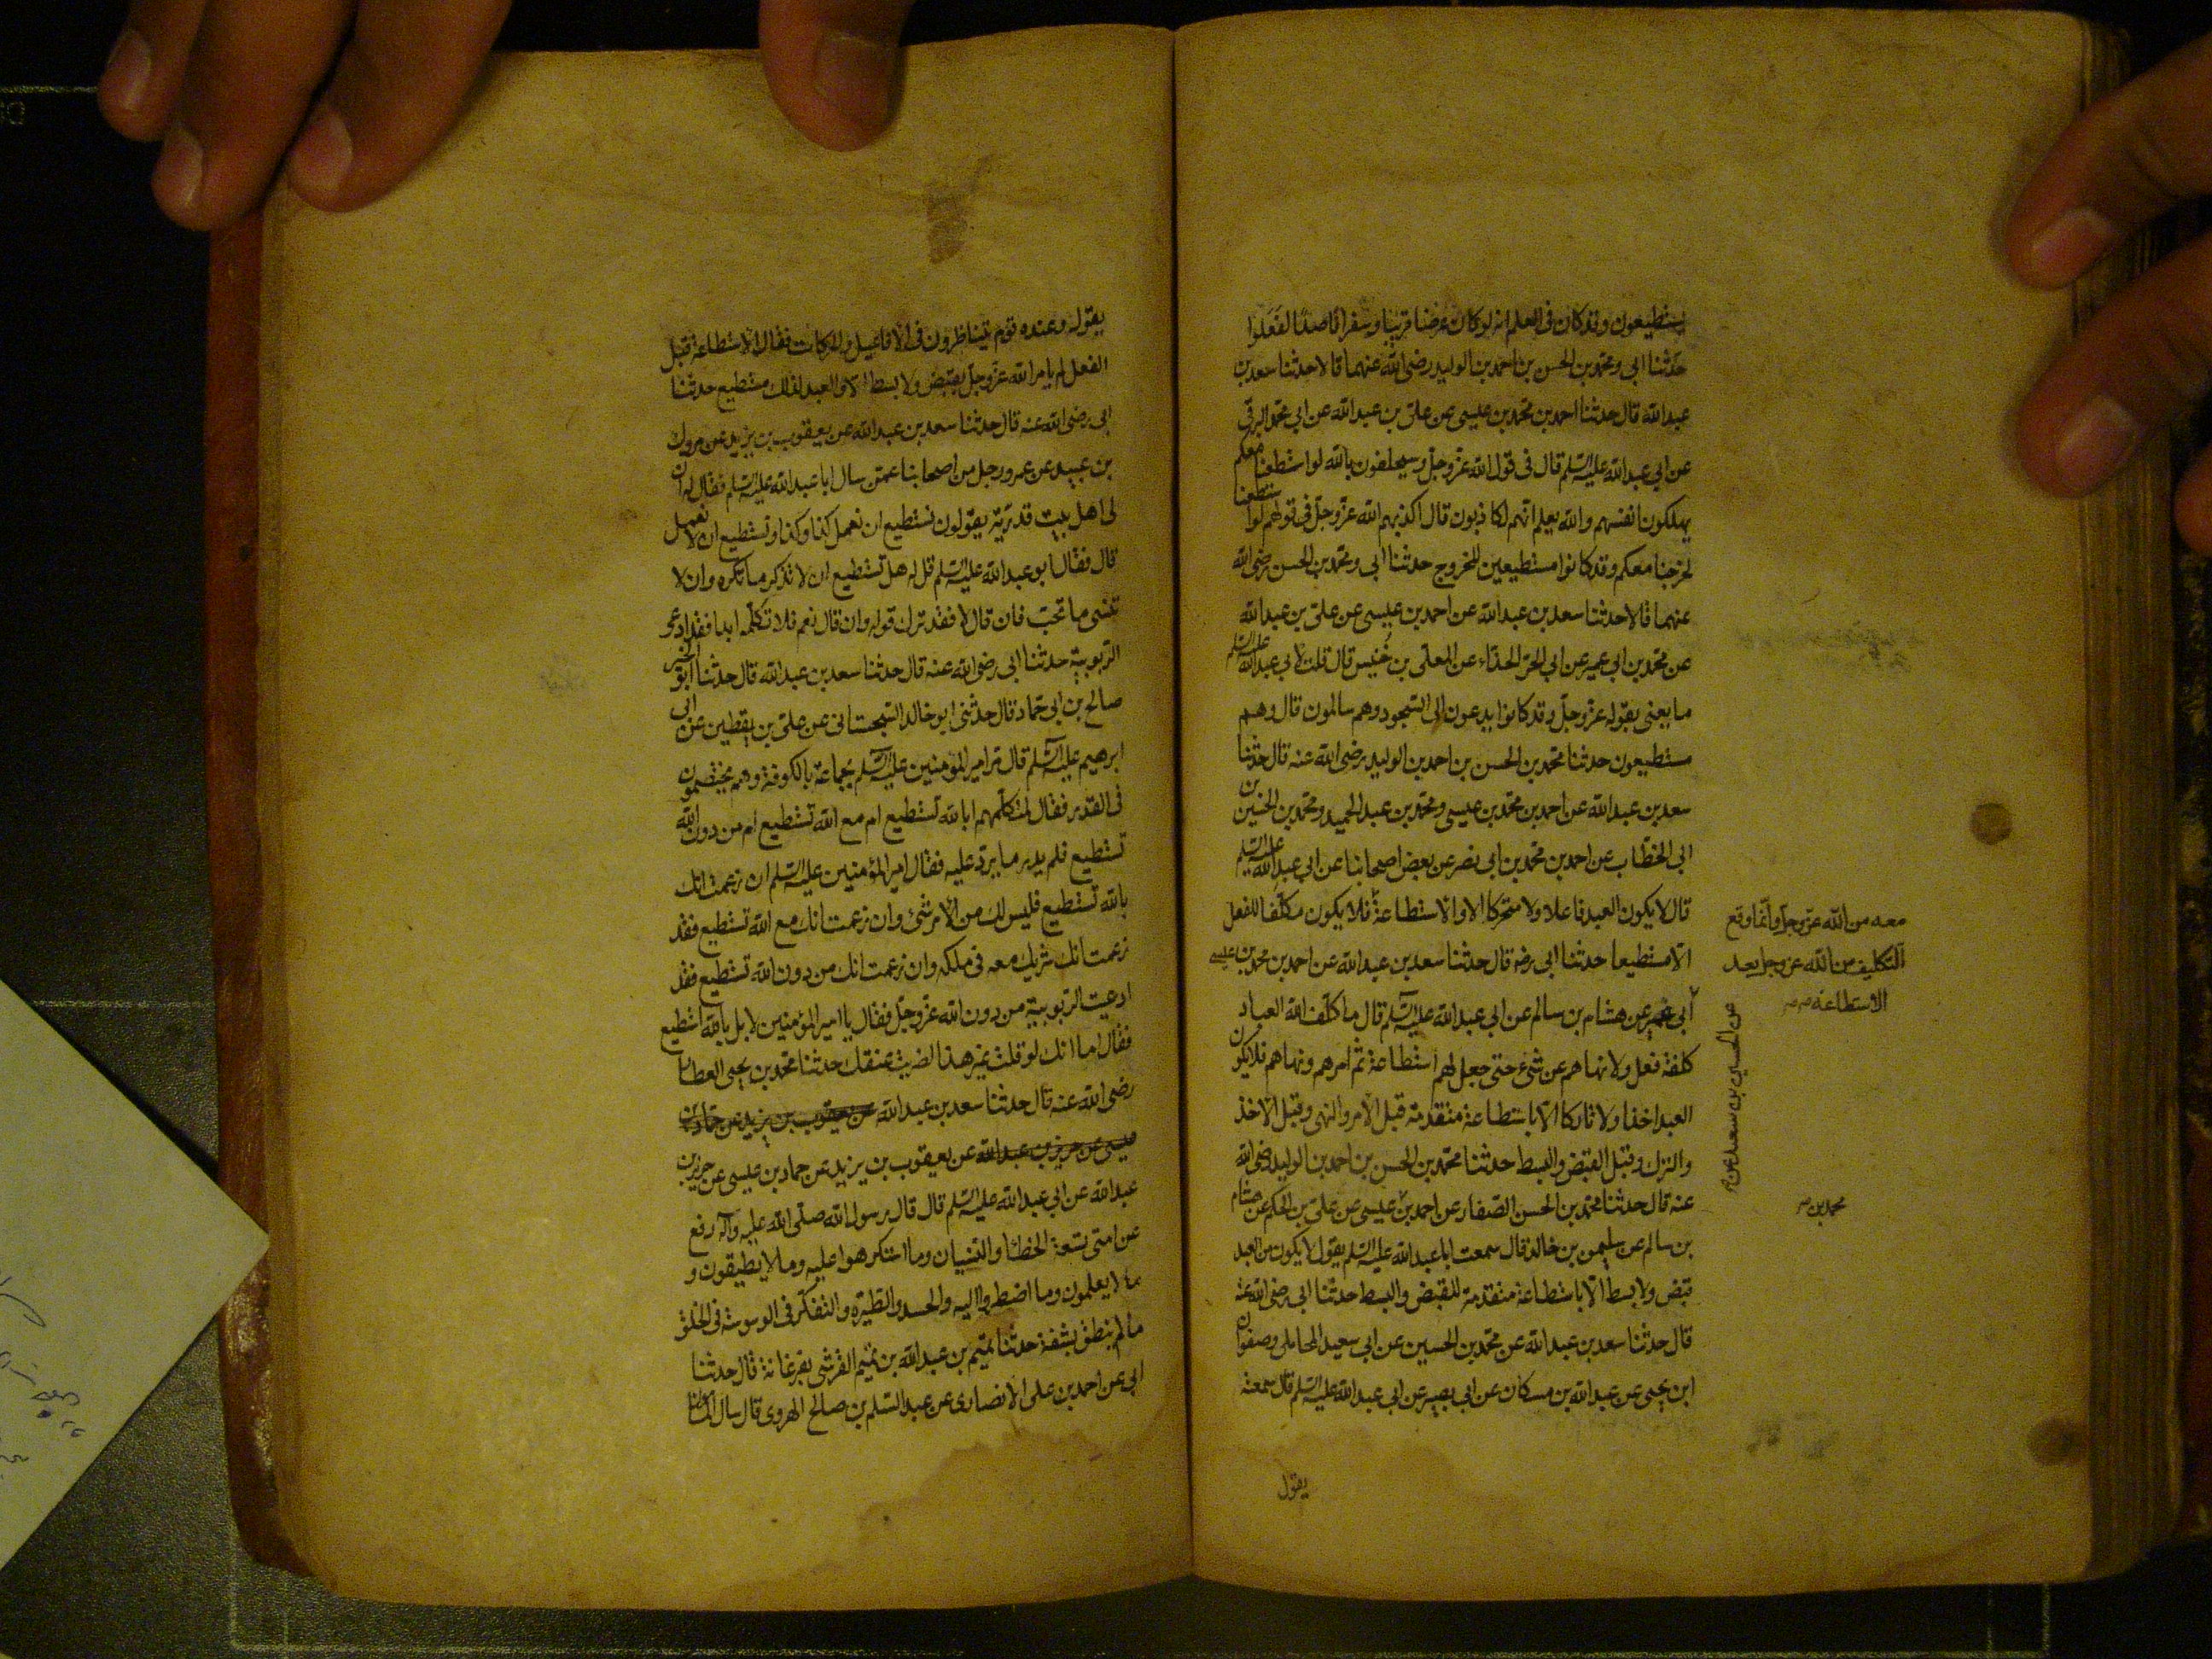 يستطيعون وقد كان في العلم انه لو كان عرضا قريبا وسفرا قاصدا لفعلوا
حدثنا ابي ومحمد بن الحسن بن احمد بن الوليد رضى الله عنهما قالا حدثنا سعد بن
عبد الله قال حدثنا احمد بن محمد بن عيسى عن على بن عبد الله عن ابي محمد البرقي
عن ابي عبد الله عليه السلم قال في قول الله عز وجل وسيحلفون بالله لو استطعنا معكم
يهلكون انفسهم والله يعلم انهم لكاذبون قال اكذبهم الله عز وجل في قولهم لو استطعنا
لخرجنا معكم وقد كانوا مستطيعين للخروج حدثنا ابي ومحمد بن الحسن رضى الله
عنهما قالا حدثنا سعد بن عبد الله عن احمد بن عيسى عن على بن عبد الله
عن محمد بن ابي عمير عن ابي الحر الحذاء عن المعلى بن خنيس قال قلت لابي عبد الله عليه السلم
ما يعنى بقوله عز وجل وقد كانوا يدعون الى السجود وهم سالمون قال وهم
مستطيعون حدثنا محمد بن الحسن بن احمد بن الوليد رضى الله عنه قال حدثنا
سعد بن عبد الله عن احمد بن محمد بن عيسى ومحمد بن عبد الحميد ومحمد بن الحسين بن
ابى الخطاب عن احمد بن محمد بن ابى نصر عن بعض اصحابنا عن ابي عبد الله عليه السلم
قال لا يكون العبد فاعلا ولا متحركا الا والاستطاعة فلا يكون مكلفا للفعل
معه من الله عز وجل وانما وقع
التكليف من الله عز وجل بعد
الاستطاعة صح
الا مستطيعا حدثنا ابى رضه قال حدثنا سعد بن عبد الله عن احمد بن محمد بن عيسى
عن الحسين بن سعد بن
ابى عمير عن هشام بن سالم عن ابي عبد الله عليه السلم قال ما كلف الله العباد
كلفة فعل ولا نهاهم عن شئ حتى جعل لهم استطاعة ثم امرهم ونهاهم فلا يكون
العبد اخذا ولا تاركا الا باستطاعة متقدمة قبل الامر والنهى وقبل الاخذ
والترك وقبل القبض والبسط حدثنا محمد بن الحسن بن احمد بن الوليد رضى الله
عنه قال حدثنا محمد بن الحسن الصفار عن احمد بن عيسى عن على بن الحكم عن هشام
محمد بن صح
بن سالم عن سليمن بن خالد قال سمعت ابا عبد الله عليه السلم يقول لا يكون من العبد
قبض ولا بسط الا باستطاعة متقدمة للقبض والبسط حدثنا ابى رضى الله عنه
قال حدثنا سعد بن عبد الله عن محمد بن الحسين عن ابى سعيد المحاملى وصفوان
ابن يحيى عن عبد الله بن مسكان عن ابى بصير عن ابى عبد الله عليه السلم قال سمعته
يقول
يقول وعنده قوم يتناظرون في الافاعيل والحركات فقال الاستطاعة قبل
الفعل لم يامر الله عز وجل بقبض ولا بسط الا والعبد لذلك مستطيع حدثنا
ابى رضى الله عنه قال حدثنا سعد بن عبد الله عن يعقوب بن يزيد عن مروك
بن عبيد عن عمرو رجل من اصحابنا عمن سال ابا عبد الله عليه السلم فقال له ان
لى اهل بيت قدرية يقولون نستطيع ان نعمل كذا وكذا ونستطيع ان لا نعمل
قال فقال ابو عبد الله عليه السلم قل له هل تستطيع ان لا تذكر ما تكره وان لا
تنسى ما تحب فان قال لا فقد ترك قوله وان قال نعم فلا تكلمه ابدا فقد ادعى
الربوبية حدثنا ابى رضى الله عنه قال حدثنا سعد بن عبد الله قال حدثنا ابو الخير
صالح بن ابى حماد قال حدثنى ابو خالد السجستانى عن على بن يقطين عن ابى
ابرهيم عليه السلم قال مر امير المؤمنين عليه السلم بجماعة بالكوفة وهم يختصمون
في القدر فقال لمتكلمهم ابالله تستطيع ام مع الله تستطيع ام من دون الله
تستطيع فلم يدر ما يرد عليه فقال امير المؤمنين عليه السلم ان زعمت انك
بالله تستطيع فليس لك من الامر شئ وان زعمت انك مع الله تستطيع فقد
زعمت انك شريك معه في ملكه وان زعمت انك من دون الله تستطيع فقد
ادعيت الربوبية من دون الله عز وجل فقال يا امير المؤمنين لا بل بالله استطيع
فقال اما انك لو قلت غير هذا لضربت عنقك حدثنا محمد بن يحيى العطار
رضى الله عنه قال حدثنا سعد بن عبد الله عن يعقوب بن يزيد عن حماد بن
عيسى عن حريز بن عبد الله عن يعقوب بن يزيد عن حماد بن عيسى عن حريز بن
عبد الله عن ابى عبد الله عليه السلم قال قال رسول الله صلى الله عليه وآله رفع
عن امتى تسعة الخطا والنسيان وما استكرهوا عليه وما لا يطيقون و
ما لا يعلمون وما اضطروا اليه والحسد والطيرة والتفكر في الوسوسة في الخلق
ما لم ينطق بشفة حدثنا تميم بن عبد الله بن تميم القرشى بفرغانة قال حدثنا
ابى عن احمد بن على الانصارى عن عبد السلم بن صالح الهروى قال سال المامون